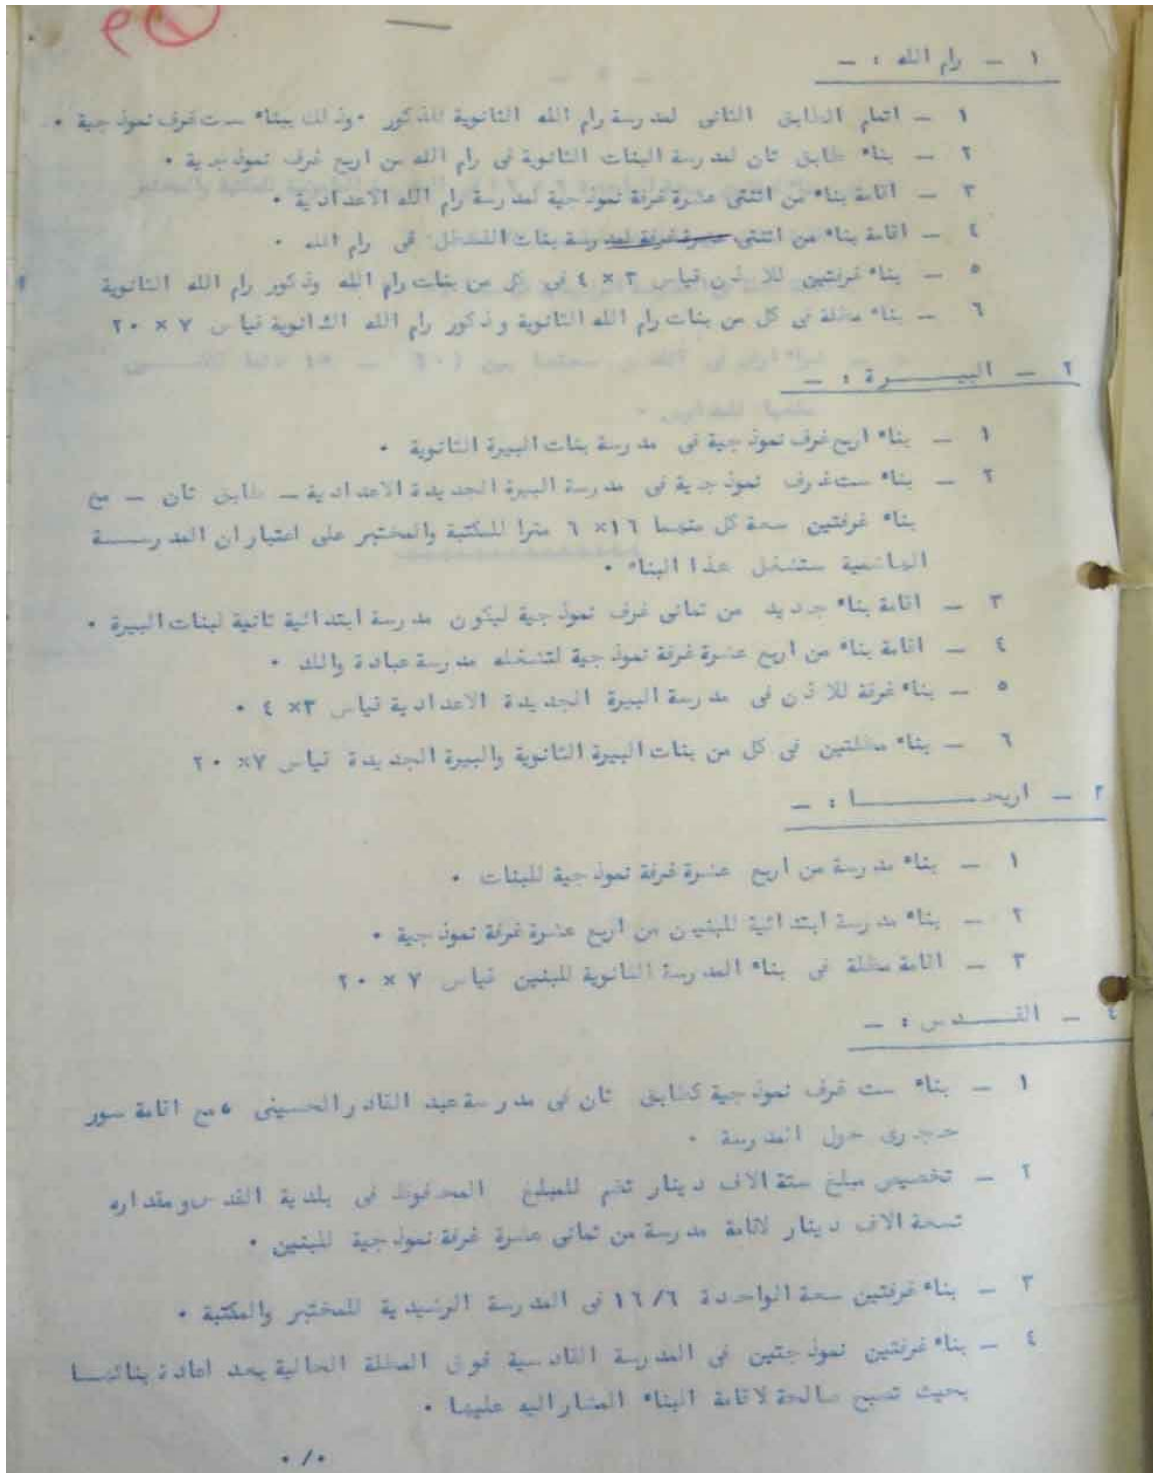 ١ - رام الله : -
١ - اتمام الطابق الثاني لمدرسة رام الله الثانوية للذكور ٠ وذلك ببناء ست غرف نموذجية ٠
٢ - بناء طابق ثان لمدرسة البنات الثانوية في رام الله من اربع غرف نموذجية ٠
٣ - اقامة بناء من اثنتي عشرة غرفة نموذجية لمدرسة رام الله الاعدادية ٠
٤ - اقامة بناء من اثنتي عشرة غرفة لمدرسة بنات في رام الله ٠
٥ - بناء غرفتين للاذن قياس ٣ × ٤ في كل من بنات رام الله وذكور رام الله الثانوية
٦ - بناء مظلة في كل من بنات رام الله الثانوية وذكور رام الله الثانوية قياس ٧ × ٢٠
٢ - البيــــرة : -
١ - بناء اربع غرف نموذجية في مدرسة بنات البيرة الثانوية ٠
٢ - بناء ست غرف نموذجية في مدرسة البيرة الجديدة الاعدادية - طابق ثان - مع
بناء غرفتين سعة كل منهما ١٦× ٦ مترا للمكتبة والمختبر على اعتبار ان المدرســـة
الهاشمية ستشغل هذا البناء ٠
٣ - اقامة بناء جديد من ثماني غرف نموذجية ليكون مدرسة ابتدائية ثانية لبنات البيرة ٠
٤ - اقامة بناء من اربع عشرة غرفة نموذجية لتشغله مدرسة عبادة والك ٠
٥ - بناء غرفة للاذن في مدرسة البيرة الجديدة الاعدادية قياس ٣× ٤ ٠
٦ - بناء مظلتين في كل من بنات البيرة الثانوية والبيرة الجديدة قياس ٧× ٢٠
٣ - اريحــــــا : -
١ - بناء مدرسة من اربع عشرة غرفة نموذجية للبنات ٠
٢ - بناء مدرسة ابتدائية للبنين من اربع عشرة غرفة نموذجية ٠
٣ - اقامة مظلة في بناء المدرسة الثانوية للبنين قياس ٧ × ٢٠
٤ - القــــدس : -
١ - بناء ست غرف نموذجية كطابق ثان في مدرسة عبد القادر الحسيني ، مع اقامة سور
حجرى حول المدرسة ٠
٢ - تخصيص مبلغ ستة الاف دينار تضم للمبلغ المحفوظ في بلدية القدس ومقداره
تسعة الاف دينار لاقامة مدرسة من ثماني عشرة غرفة نموذجية للبنين ٠
٣ - بناء غرفتين سعة الواحدة ١٦/٦ في المدرسة الرشيدية للمختبر والمكتبة ٠
٤ - بناء غرفتين نموذجتين في المدرسة القادسية فوق المظلة الحالية بعد اعادة بنائهـــا
بحيث تصبح صالحة لاقامة البناء المشار اليه عليها ٠
٠/٠